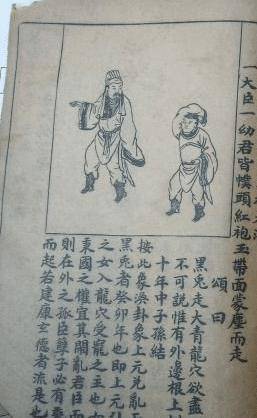 一大臣一幼君皆幞頭紅袍玉帶面蒙塵而走
頌曰
黑兎走大青龍穴欲盡
不可說惟有外邊根上
十年中子孫結
按此象渙卦象上元兌五
黑兎者癸卯年也即上元
之女入龍穴受寵之主也
東國之權宜其鬪亂君臣而
則在外之孤臣孽子必有
而起若建康玄德者流是也